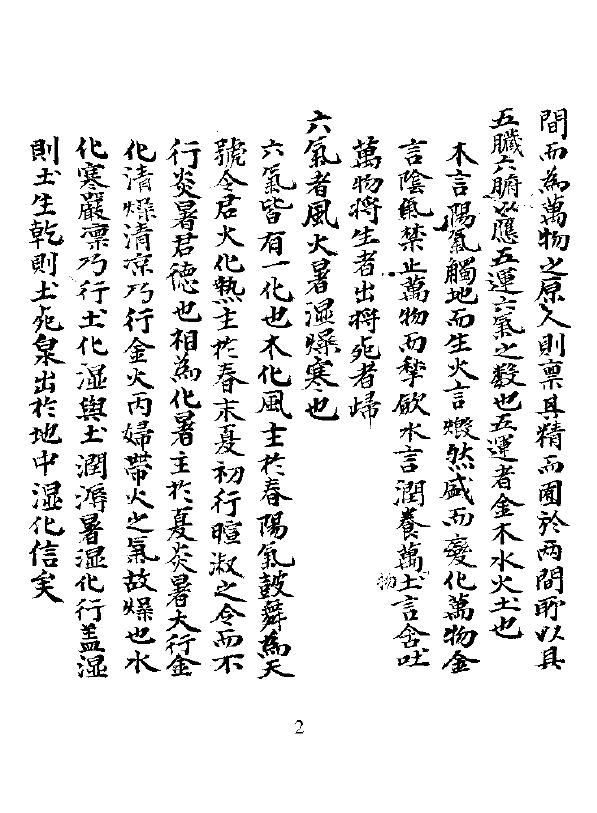 間而為萬物之原人則禀其精而囿於两間所以具
五臟六腑以應五運六氣之数也五運者金木水火土也
木言陽氣觸地而生火言煅然盛而變化萬物金
言陰氣禁止萬物而揫歛水言潤養萬物土言含吐
萬物將生者出將死者歸
六氣者風火暑湿燥寒也
六氣皆有一化也木化風主於春陽氣鼓舞為天
號令君火化熱主於春末夏初行暄淑之令而不
行炎暑君德也相為化暑主於夏炎暑大行金
化清燥清凉乃行金火丙婦帶火之氣故燥也水
化寒嚴凛乃行土化湿與土潤溽暑湿化行盖湿
則土生乾則土死泉出於地中湿化信矣
2